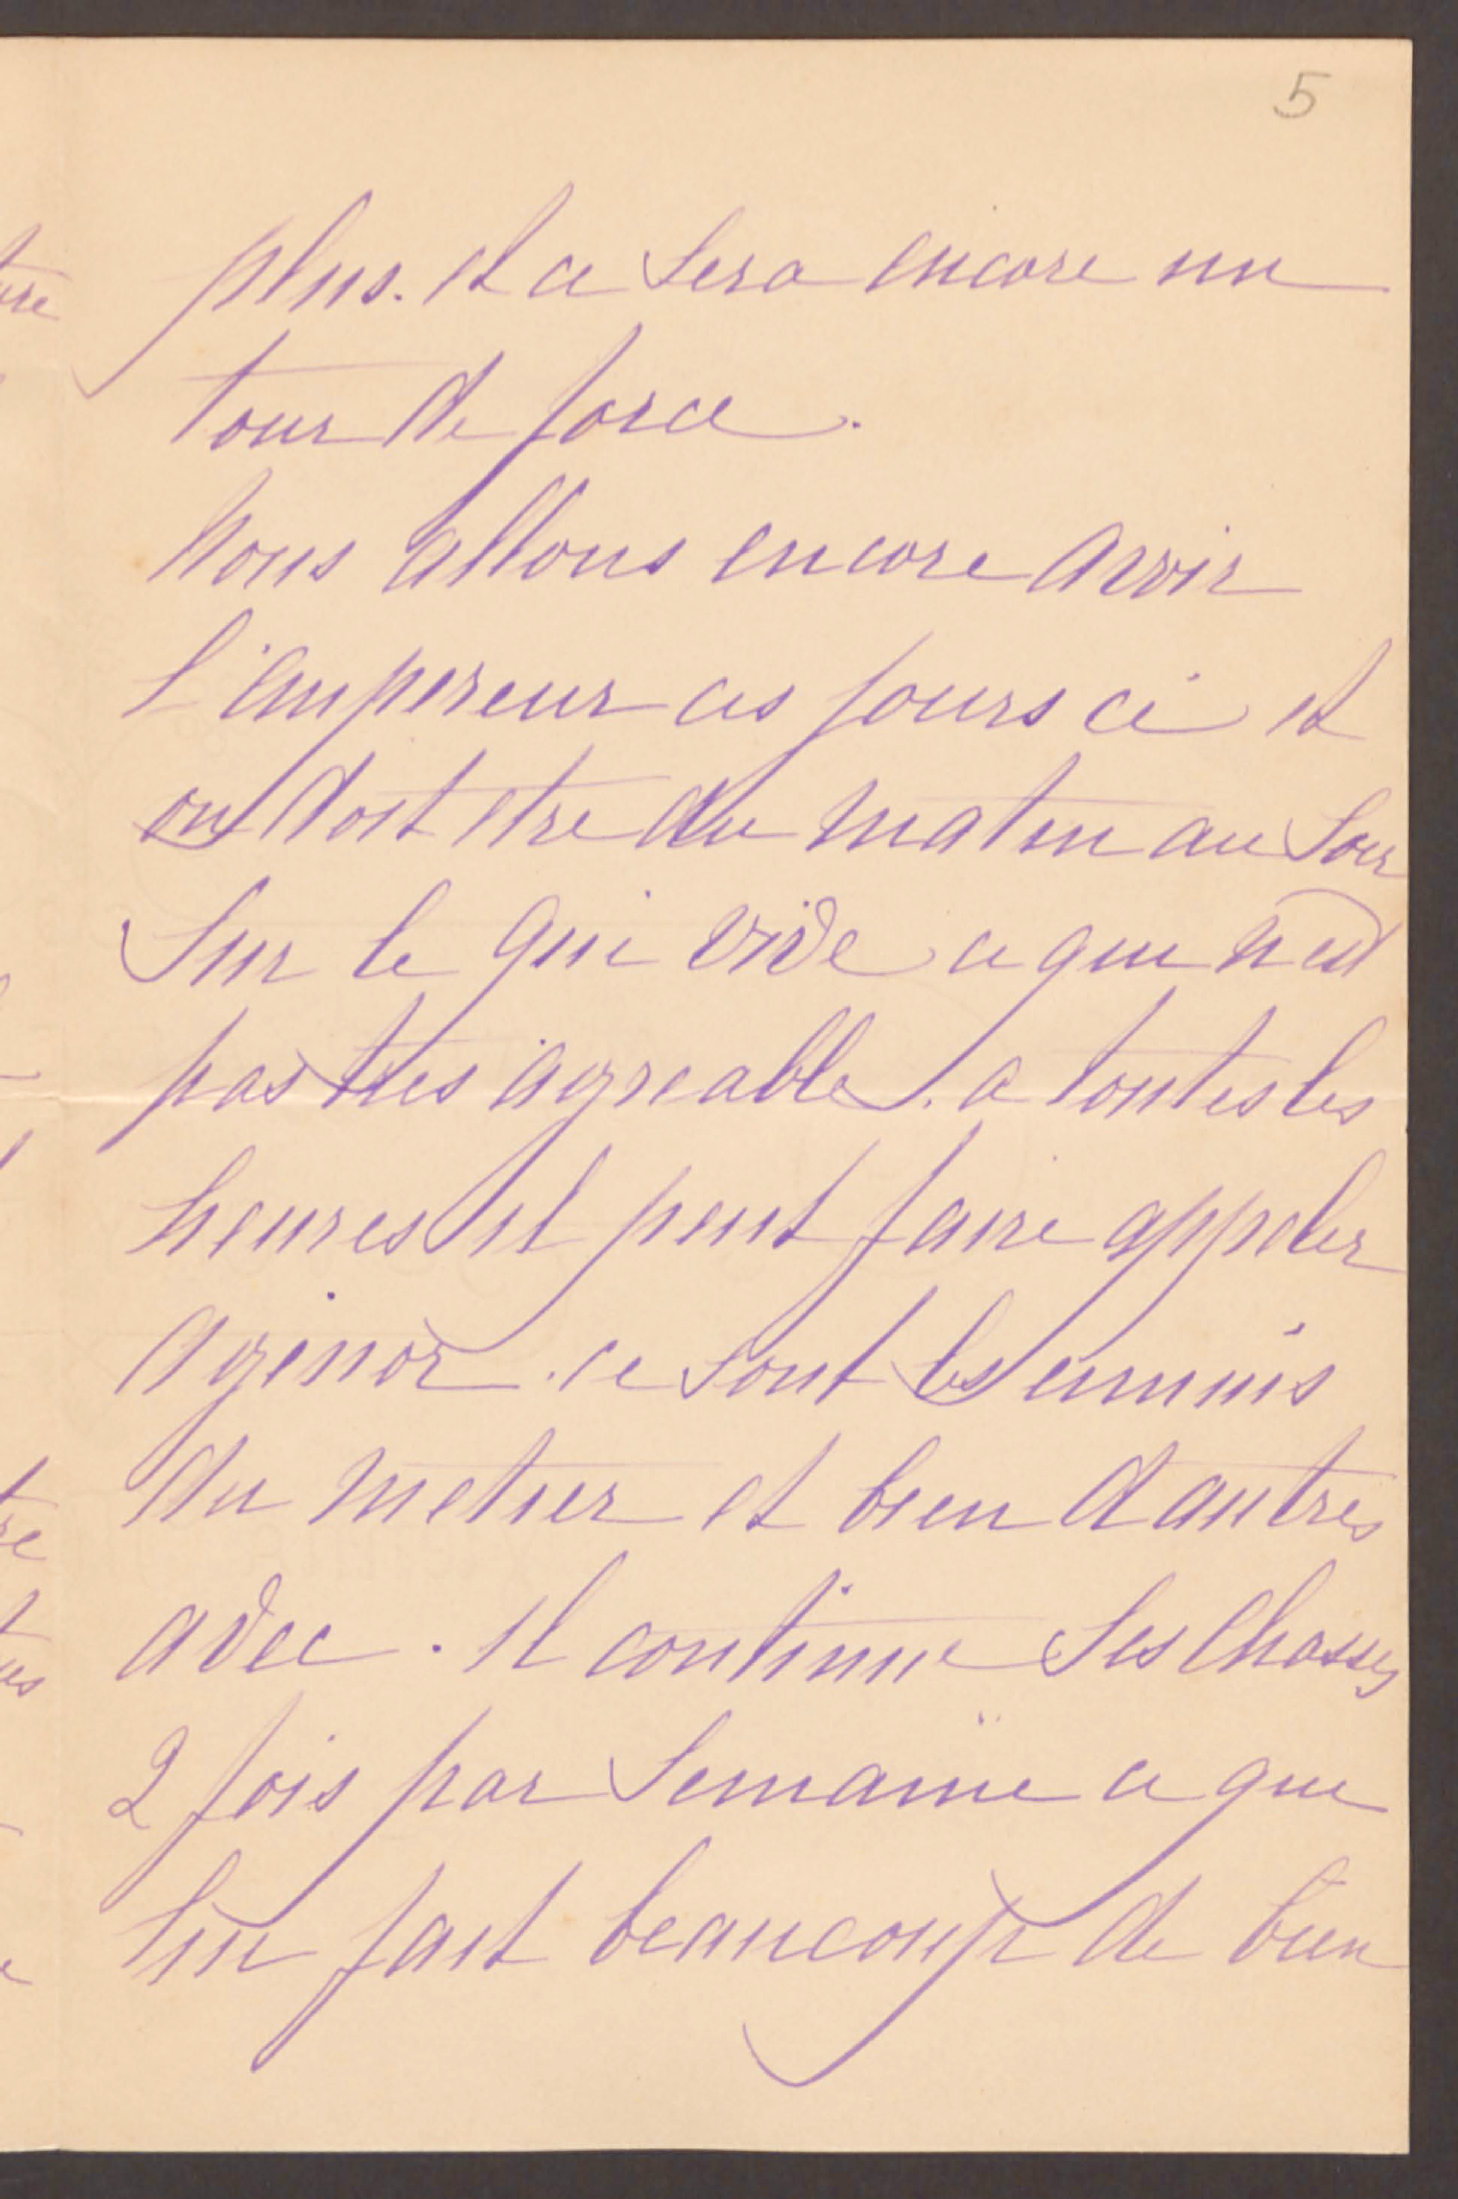 5
plus. et ce sera encore un
tour de force.
Nous allons encore avoir
l'empereur ces jours ci et
on doit etre du matin au soir
sur le qui vive ce qui n'est
pas très agreable. a toutes les
heures il peut faire appeler
Agenor. ce sont les ennuis
du metier et bien d'autres
avec. il continue ses chasses
2 fois par semaine ce que
lui fait beaucoup de bien